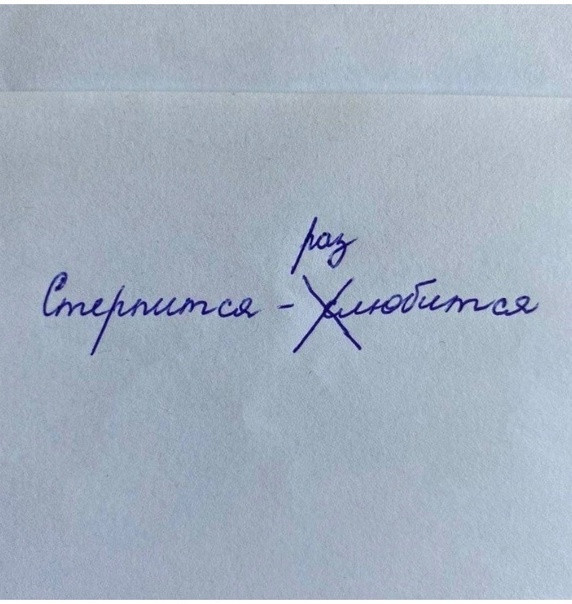 раз
Стерпится - слюбится